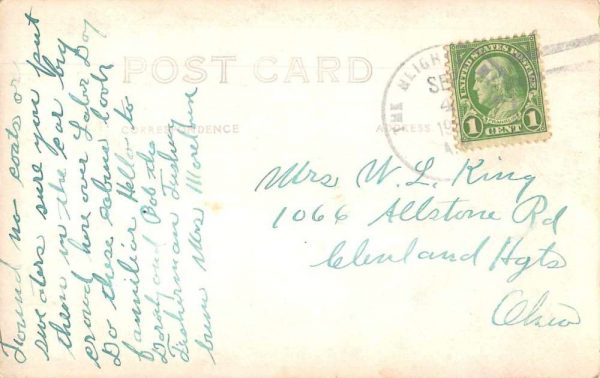 Found no coats or
sweaters sure you put
them in the car big
crowd here over Labor Day
Do these cabins look
familiar Hello to
and Bob the
Fisherman
Mrs
POST CARD
CORRESPONDENCE
ADDRESS
THE
SE
4
19
UNITED STATES POSTAGE
FRANKLIN
1 CENT 1
Mrs W. L. King
1066 Allstone Rd
Clevland Hgts
Ohio